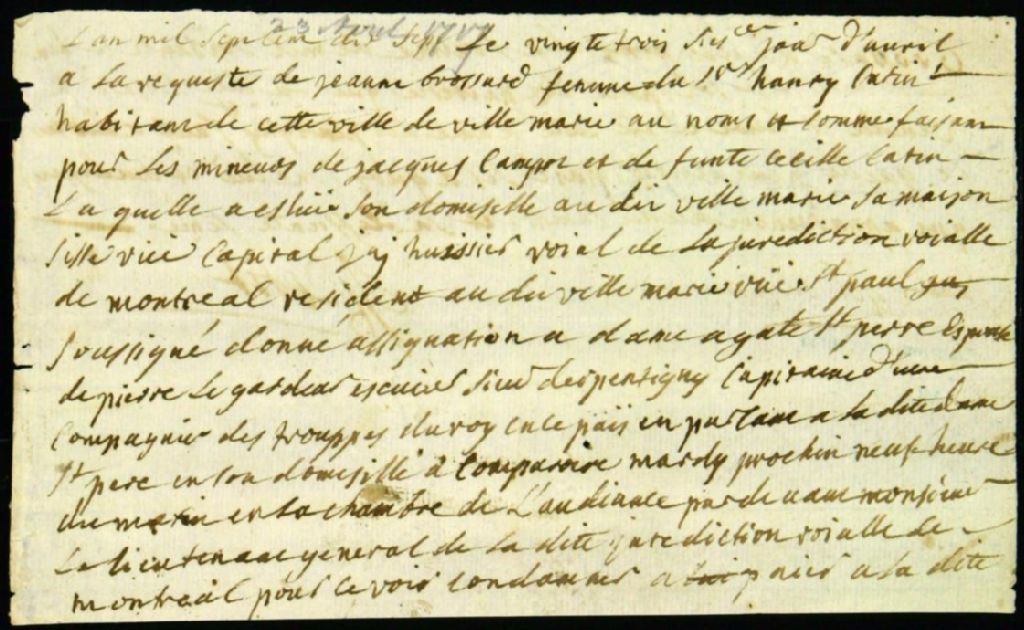 23 Avril 1717
L'an mil sept cen dix sept le vingte trois sies.me jour d'avril
a la requeste de jeanne brossard femme du Sr hanry Catin
habitant de cette ville de ville marie au noms et comme faisant
pour les mineurs de jacques Campot et de funte Cecille Catin
La quelle a eslüe son domisille au dit ville marie sa maison
sisse rüe Capital jay huissier roial de la juredicttion roialle
de montreal resident au dit ville marie rüe St paul
soussigné donné assignation a dame agate St perre Espouse
de pierre Legardeur escuier sieur derepentigny Capitaine d'une
Compagnie des trouppes du roy en ce païs en parlant a la dite dame
St pere en son domisille a Comparoire mardy prochin neuf heure
du matin en la chambre de L'audiance par devant monsieur
Le lieutenant general de la dite juredicttion roialle de
montreal pour ce voir condamner a paier a la dite